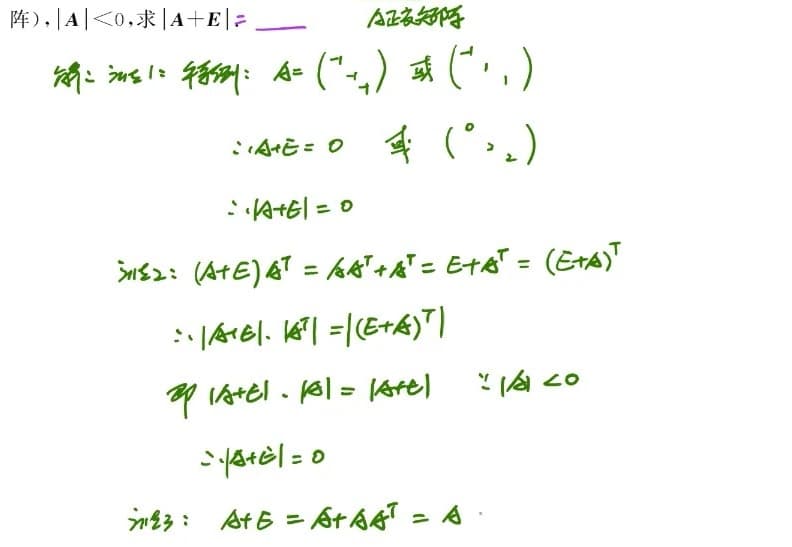 阵),|A|<0,求|A+E|= ____ A正交矩阵
解: 法1: 特例: A=(-1 -1 -1) 或 (-1 1 1)
∴A+E=0 或 (0 2 2)
∴|A+E|=0
法2: (A+E)Aᵀ=AAᵀ+Aᵀ=E+Aᵀ=(E+A)ᵀ
∴|A+E|·|Aᵀ|=|(E+A)ᵀ|
即|A+E|·|A|=|A+E| ∵|A|<0
∴|A+E|=0
法3: A+E=A+AAᵀ=A